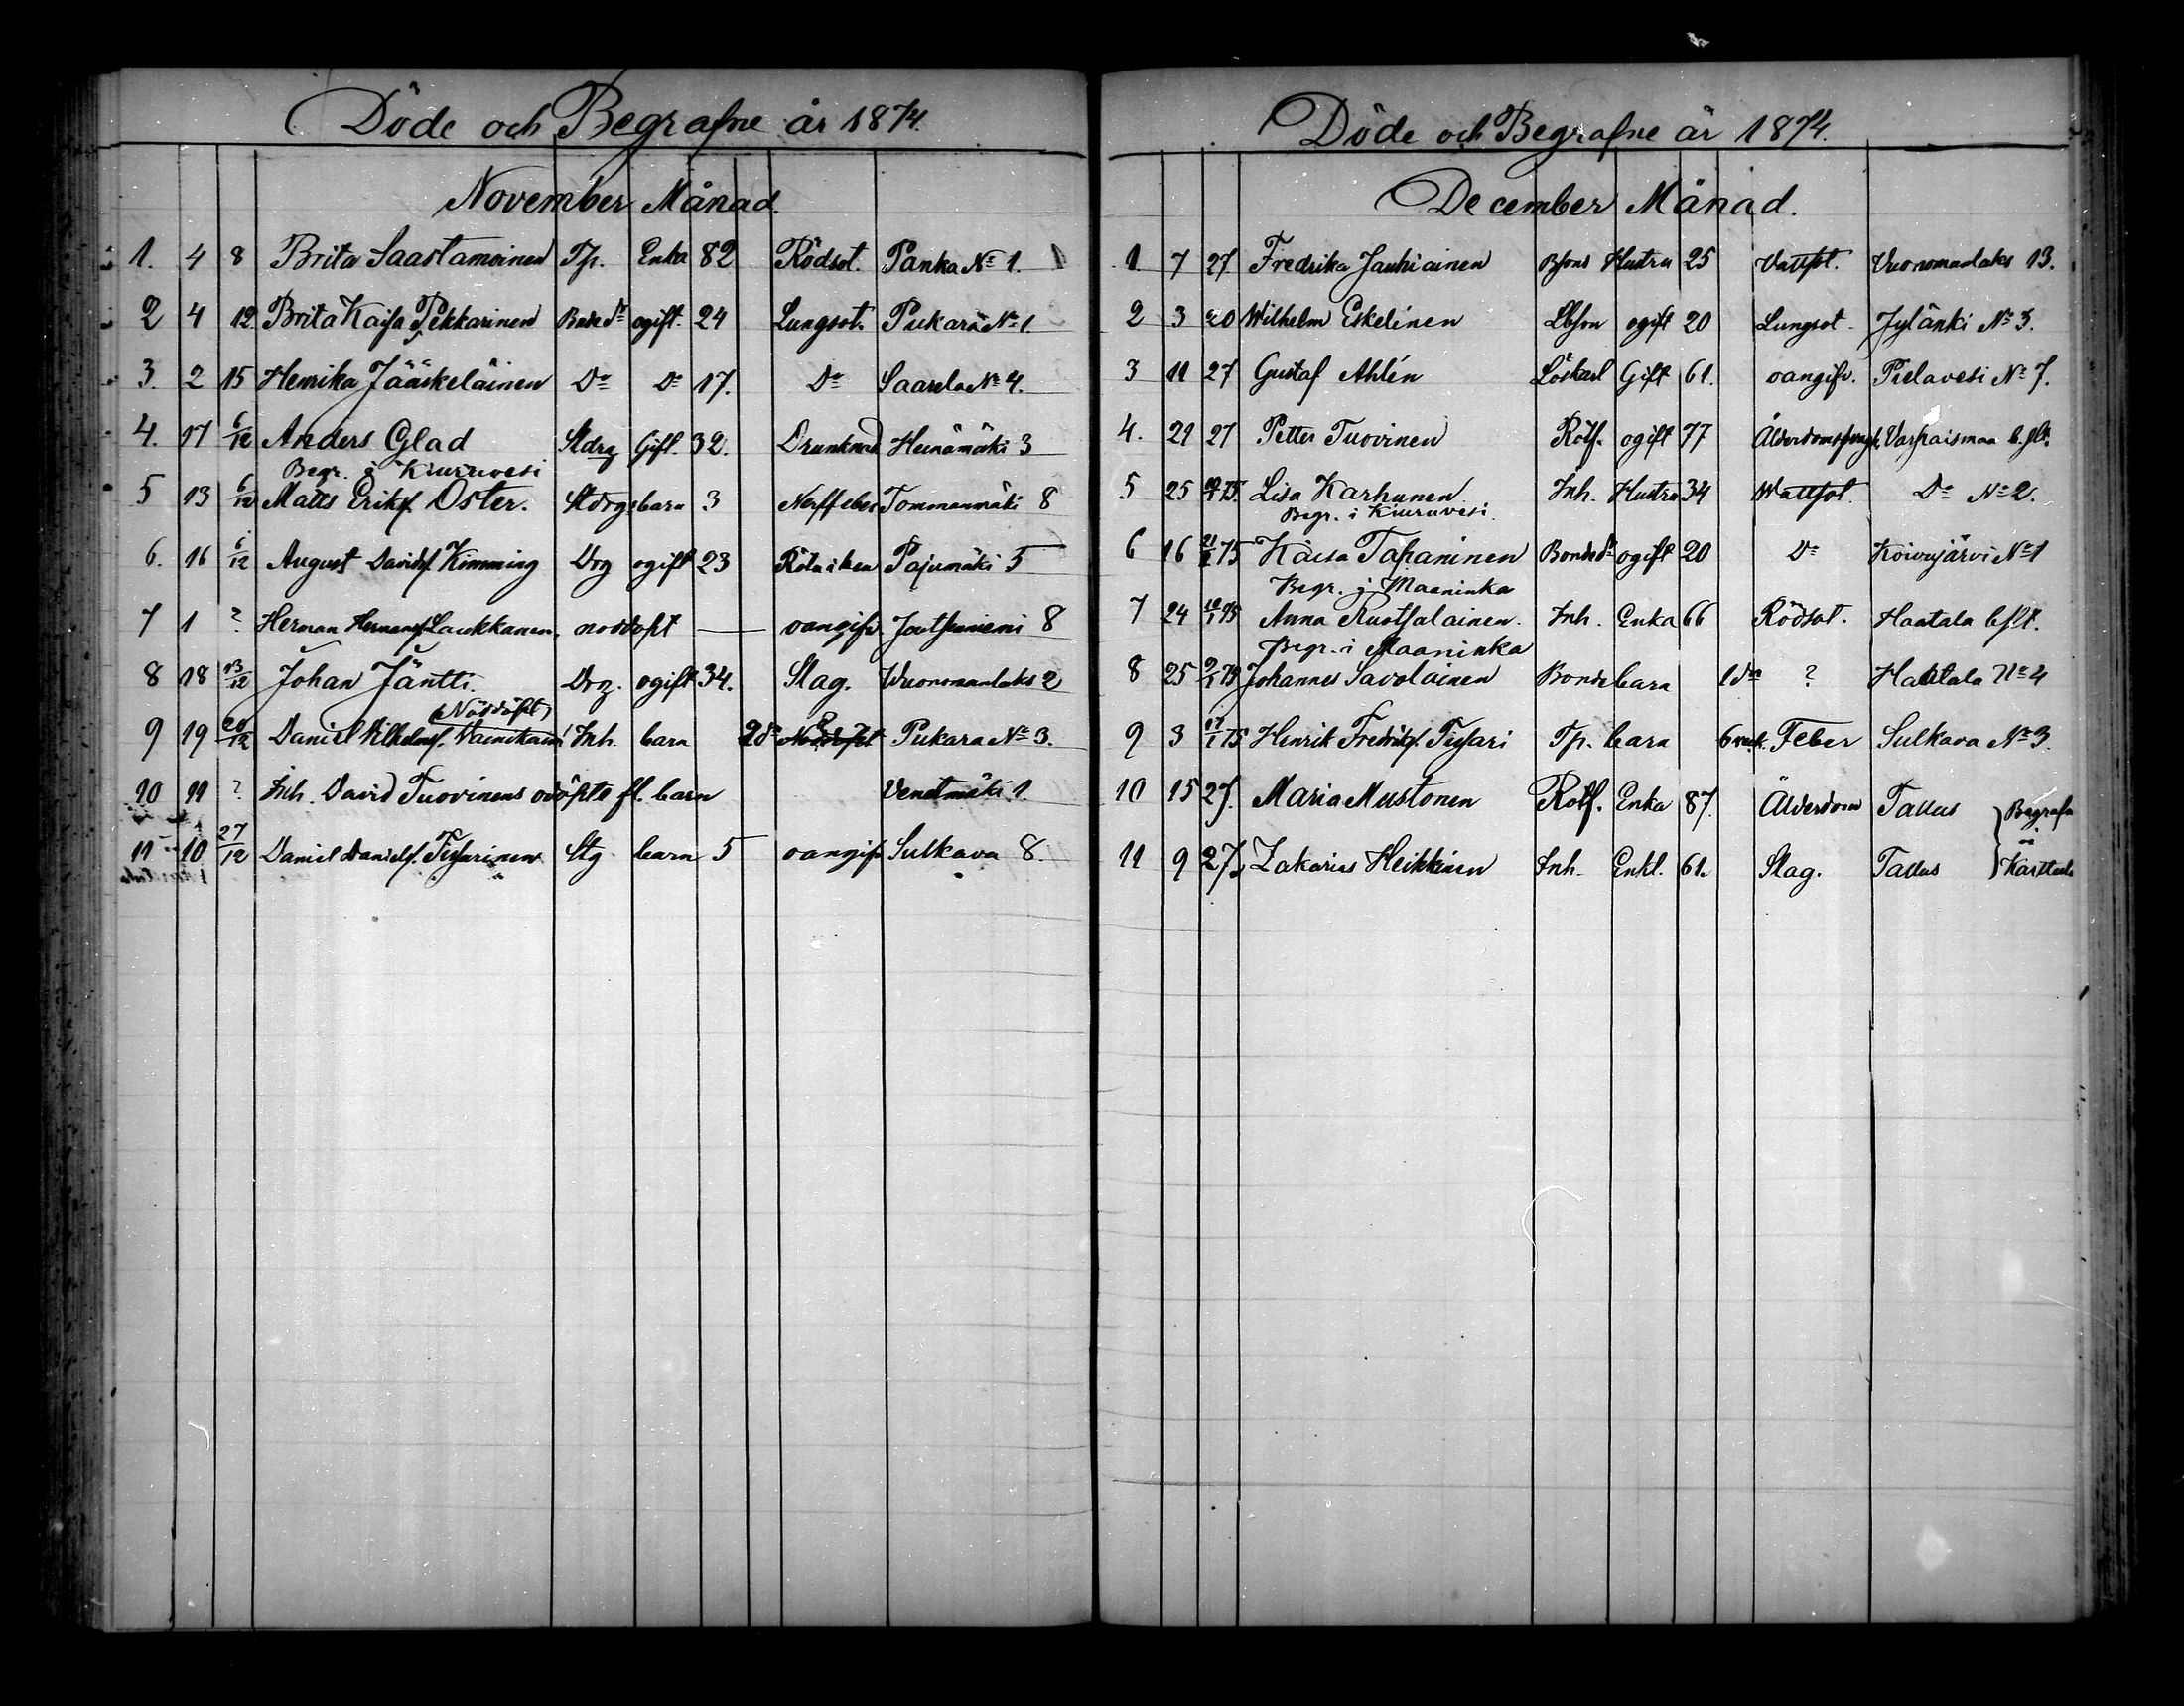 Döde och Begrafne år 1874.
November Månad.
1. 4 8 Brita Saastamoinen Tp. Enka 82 Rödsot. Panka No 1.
2 4 12 Brita Kaisa Pekkarinen Bonded:r ogift. 24 Lungsot. Pukara No 1
3. 2 15 Henrika Jääskeläinen Do Do 17. Do Saarela No 4.
4. 17 6/12 Anders Glad Stdrg Gift. 32. Drunknad Heinämäki 3
Begr. i Kiuruvesi
5 13 6/12 Matts Eriksf. Oster. Stdrgs barn 3 Nerffeber Tommanmäki 8
6. 16 6/12 August Davidsf. Kimming Drg ogift 23 Pajumäki 5
7 1 ? Herman Hermansf. Laukkanen nöddöpt — oangifv. Joutsenniemi 8
8 18 13/12 Johan Jäntti. Drg. ogift 34. Slag. Wuonomanlaks 2
(Nöddöpt)
9 19 20/12 Daniel Vilhelmsf. Inh. barn 2 dr ? Nöddöpt Pukara No 3.
10 11 ? Inh. David Tuovinens odöpta fl. barn Venetmäki 1.
11 10 27/12 Daniel Danielsf. Tissarinen Stg barn 5 oangifv Sulkava 8.
Döde och Begrafne år 1874.
December Månad.
1 7 27 Fredrika Jauhiainen Bsons Hustru 25 Vattsot. Vuonomanlaks 13.
2 3 20 Wilhelm Eskelinen Lbson ogift 20 Lungsot. Jylänki No 3.
3 11 27 Gustaf Ahlén Löskarl Gift 61. oangifv. Pielavesi No 7.
4. 21 27 Petter Tuovinen Rotf. ogift 77 Varpaismaa
5 25 Lisa Karhunen Inh. Hustru 34 Wattsot. Do No 2.
Begr. i Kiuruvesi.
6 16 75 Kaisa Tapaninen Bonded:r ogift 20 Do Koivujärvi No 1
Begr. i Maaninka
7 24 75 Anna Ruotsalainen. Inh. Enka 66 Rödsot. Haatala
Begr. i Maaninka
8 25 75 Johannes Savolainen Bonde barn 1 dr ? Haatala No 4
9 3 17/1 75 Henrik Fredriksf. Tissari Tp. barn 6 veck. Feber Sulkava No 3
10 15 27. Maria Mustonen Rotf. Enka 87. Ålderdom Tallus } Begrafn
i
11 9 27. Zakarias Heikkinen Inh. Enkl. 61. Slag. Tallus } Karttula